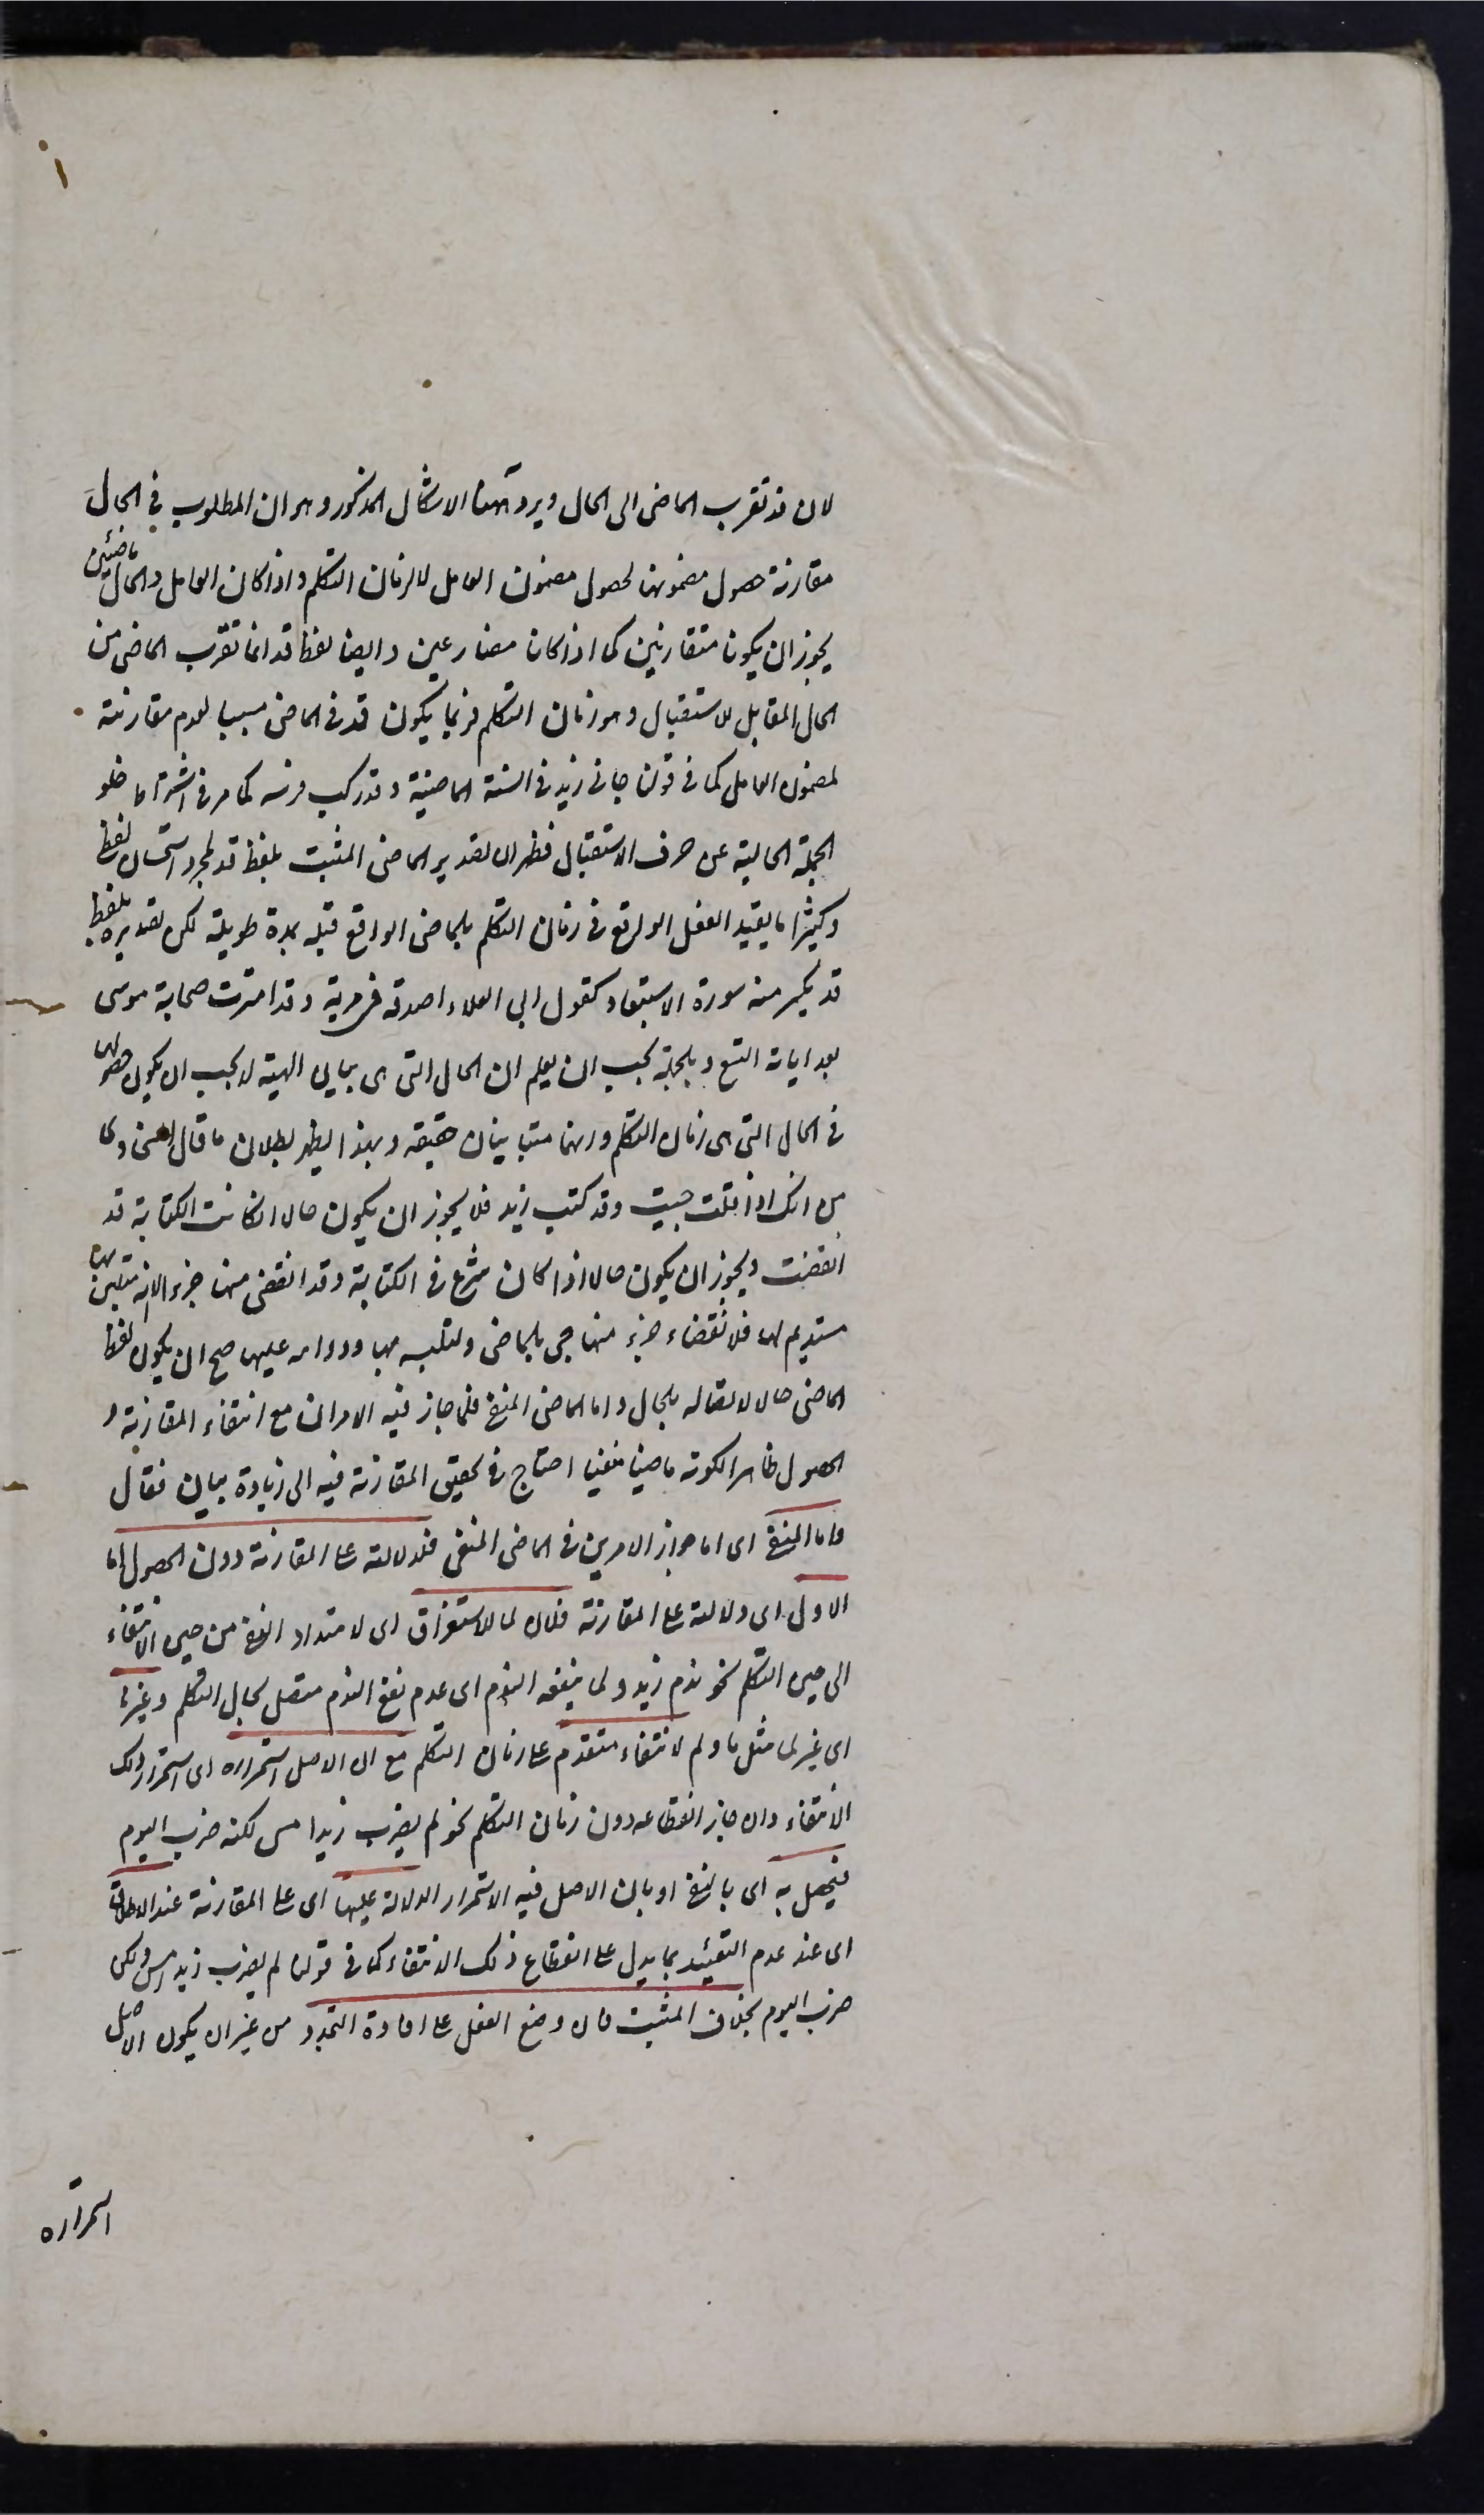 ١
لان قد تقرب الماضى الى الحال ويرد ههنا الاشكال المذكور وهو ان المطلوب فى الحال
مقارنة حصول مضمونها لحصول مضمون العامل لا لزمان التكلم واذا كان العامل والحال ماضيين
يجوز ان يكونا متقارنين كما اذا كانا مضارعين وايضا لفظ قد انما تقرب الماضى من
الحال المقابل للاستقبال وهو زمان التكلم فربما يكون قد فى الماضى سببا لعدم مقارنته
لمضمون العامل كما فى قولنا جانى زيد فى السنة الماضية وقد ركب فرسه كما مر فى اشتراط خلو
الجملة الحالية عن حرف الاستقبال فظهر ان تقدير الماضى المثبت بلفظ قد لمجرد استحسان لفظ
وكثيرا ما يقيد الفعل الواقع فى زمان التكلم بالماضى الواقع قبله بمدة طويلة لكن تقديره بلفظ
قد يكسر منه سورة الاستبعاد كقول ابى العلاء اصدقه فى مرية وقد امترت صحابة موسى
بعد اياته التسع وبالجملة يجب ان يعلم ان الحال التى هى بيان الهيئة لا يجب ان يكون حصولها
فى الحال التى هى زمان التكلم وانهما متباينان حقيقة وبهذا يظهر بطلان ما قال السخاوى
من انك اذا قلت جيت وقد كتب زيد فلا يجوز ان يكون حالا ان كانت الكتابة قد
انقضت ويجوز ان يكون حالا اذا كان شرع فى الكتابة وقد انقضى منها جزء الا انه متلبس بها
مستديم لها فلانقضاء جزء منها جى بالماضى ولتلبسه بها ودوامه عليها صح ان يكون لفظ
الماضى حالا لاتصاله بالحال واما الماضى المنفى فلما جاز فيه الامران مع انتفاء المقارنة و
الحصول ظاهرا لكونه ماضيا منفيا احتاج فى تحقيق المقارنة فيه الى زيادة بيان فقال
واما المنفى اى اما جواز الامرين فى الماضى المنفى فلدلالته على المقارنة دون الحصول اما
الاول اى دلالته على المقارنة فلان لما للاستغراق اى لامتداد النفى من حين الانتفاء
الى حين التكلم نحو ندم زيد ولما ينفعه الندم اى عدم نفع الندم متصل بحال التكلم وغيرها
اى غير لما مثل ما ولم لانتفاء متقدم على زمان التكلم مع ان الاصل استمراره اى استمرار ذلك
الانتفاء وان جاز انقطاعه دون زمان التكلم نحو لم يضرب زيد امس لكنه ضرب اليوم
فيحصل به اى بالنفى او بان الاصل فيه الاستمرار الدلالة عليها اى على المقارنة عند الاطلاق
اى عند عدم التقييد بما يدل على انقطاع ذلك الانتفاء كما فى قولنا لم يضرب زيد امس ولكن
ضرب اليوم بخلاف المثبت فان وضع الفعل على افادة التجدد من غير ان يكون الاصل
استمراره